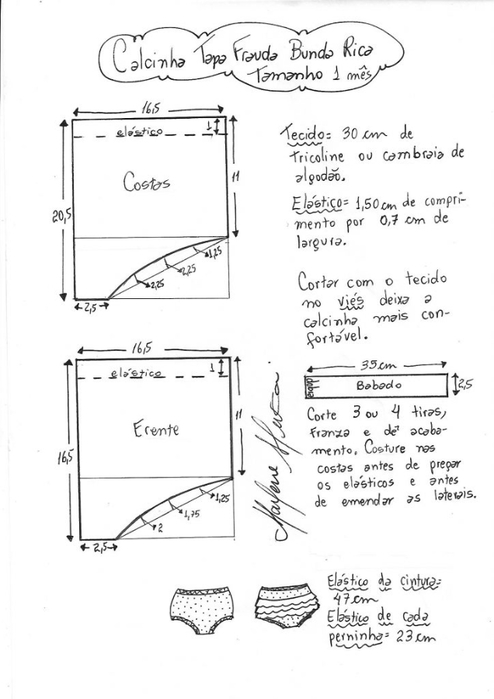 Calcinha Tapa Frauda Bunda Rica
Tamanho 1 mês
16,5
elástico
1
Costas
11
20,5
1,25
2,25
2,25
2,5
Tecido= 30 cm de
tricoline ou cambraia de
algodão.
Elástico= 1,50 cm de compri-
mento por 0,7 cm de
largura.
Cortar com o tecido
no viés deixa a
calcinha mais con-
fortável.
16,5
elástico
1
Frente
11
16,5
1,25
1,75
2
2,5
35cm
dobra
Babado
2,5
Corte 3 ou 4 tiras,
franza e dê acaba-
mento. Costure nas
costas antes de pregar
os elásticos e antes
de emendar as laterais.
Marlene Mukai
Elástico da cintura=
47cm
Elástico de cada
perninha= 23 cm